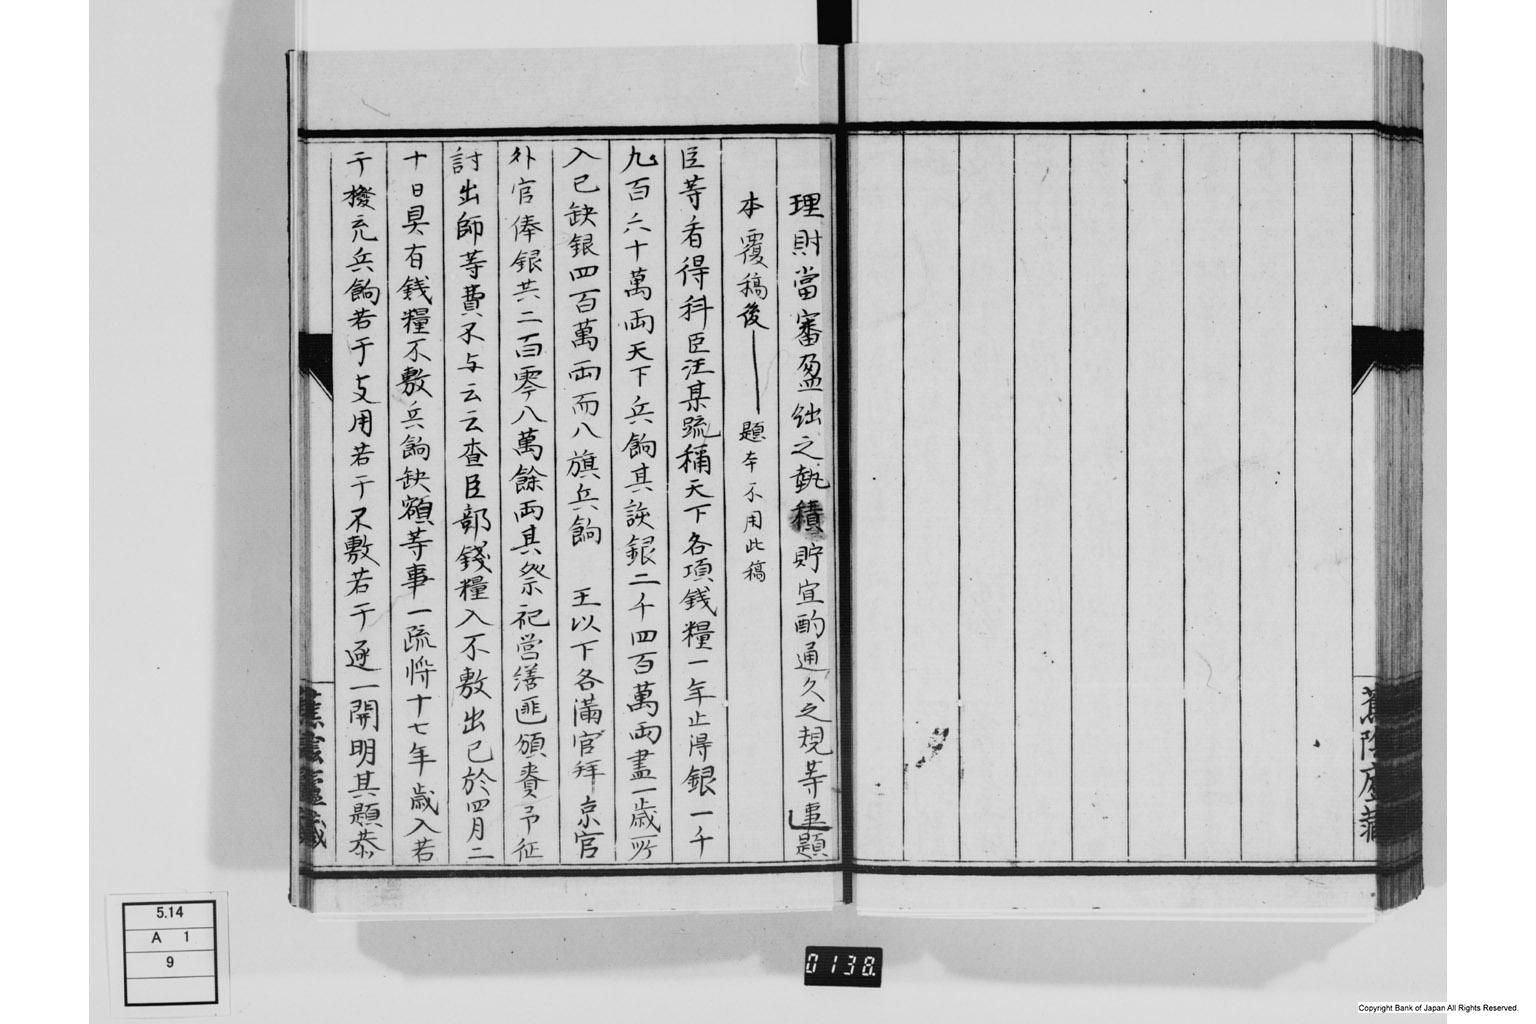 理財當審盈絀之執積貯宜酌通久之規等事題
本覆稿後——題本不用此稿
臣等看得科臣汪某疏稱天下各項錢糧一年止得銀一千
九百六十萬両天下兵餉其該銀二千四百萬両盡一歲所
入已缺銀四百萬両而八旗兵餉　王以下各滿官拜京官
外官俸銀共二百零八萬餘両其祭祀営繕匪頒賚予征
討出師等費不与云云查臣部錢糧入不敷出已於四月二
十日具有錢糧不敷兵餉缺額等事一疏將十七年歲入若
干撥充兵餉若干支用若干不敷若干逐一開明具題恭
蕉陰廬藏
5.14
A 1
9
0138.
Copyright Bank of Japan All Rights Reserved.